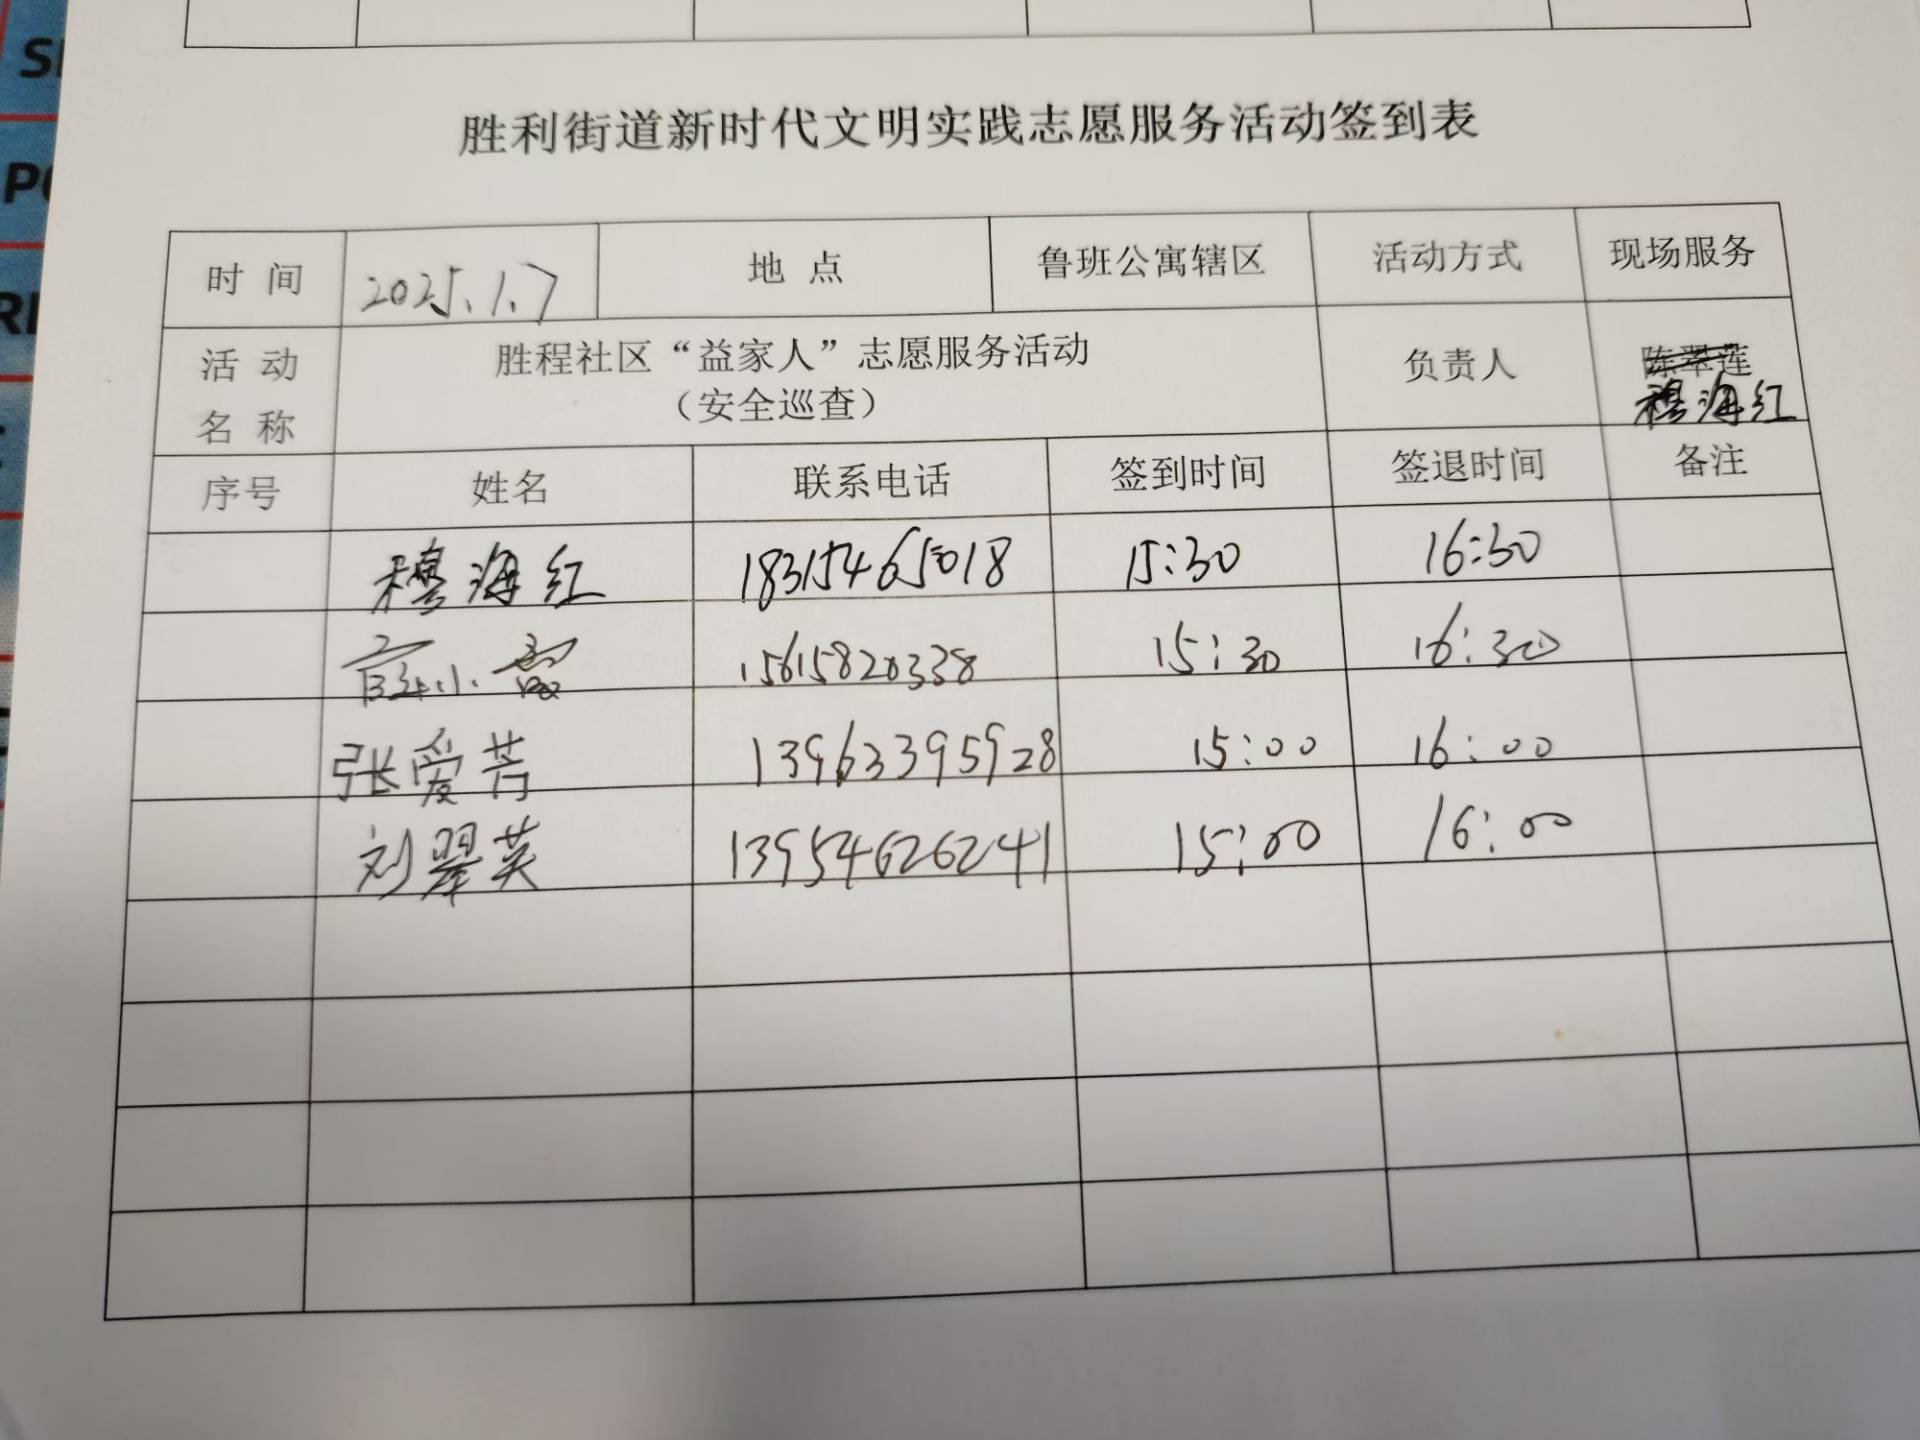 胜利街道新时代文明实践志愿服务活动签到表
时 间 2025.1.7 地 点 鲁班公寓辖区 活动方式 现场服务
活 动 名 称 胜程社区“益家人”志愿服务活动
（安全巡查） 负责人 陈翠莲
穆海红
序号 姓名 联系电话 签到时间 签退时间 备注
穆海红 18315465018 15:30 16:30
15615820338 15:30 16:30
张爱芳 13963395928 15:00 16:00
刘翠英 13954626241 15:00 16:00